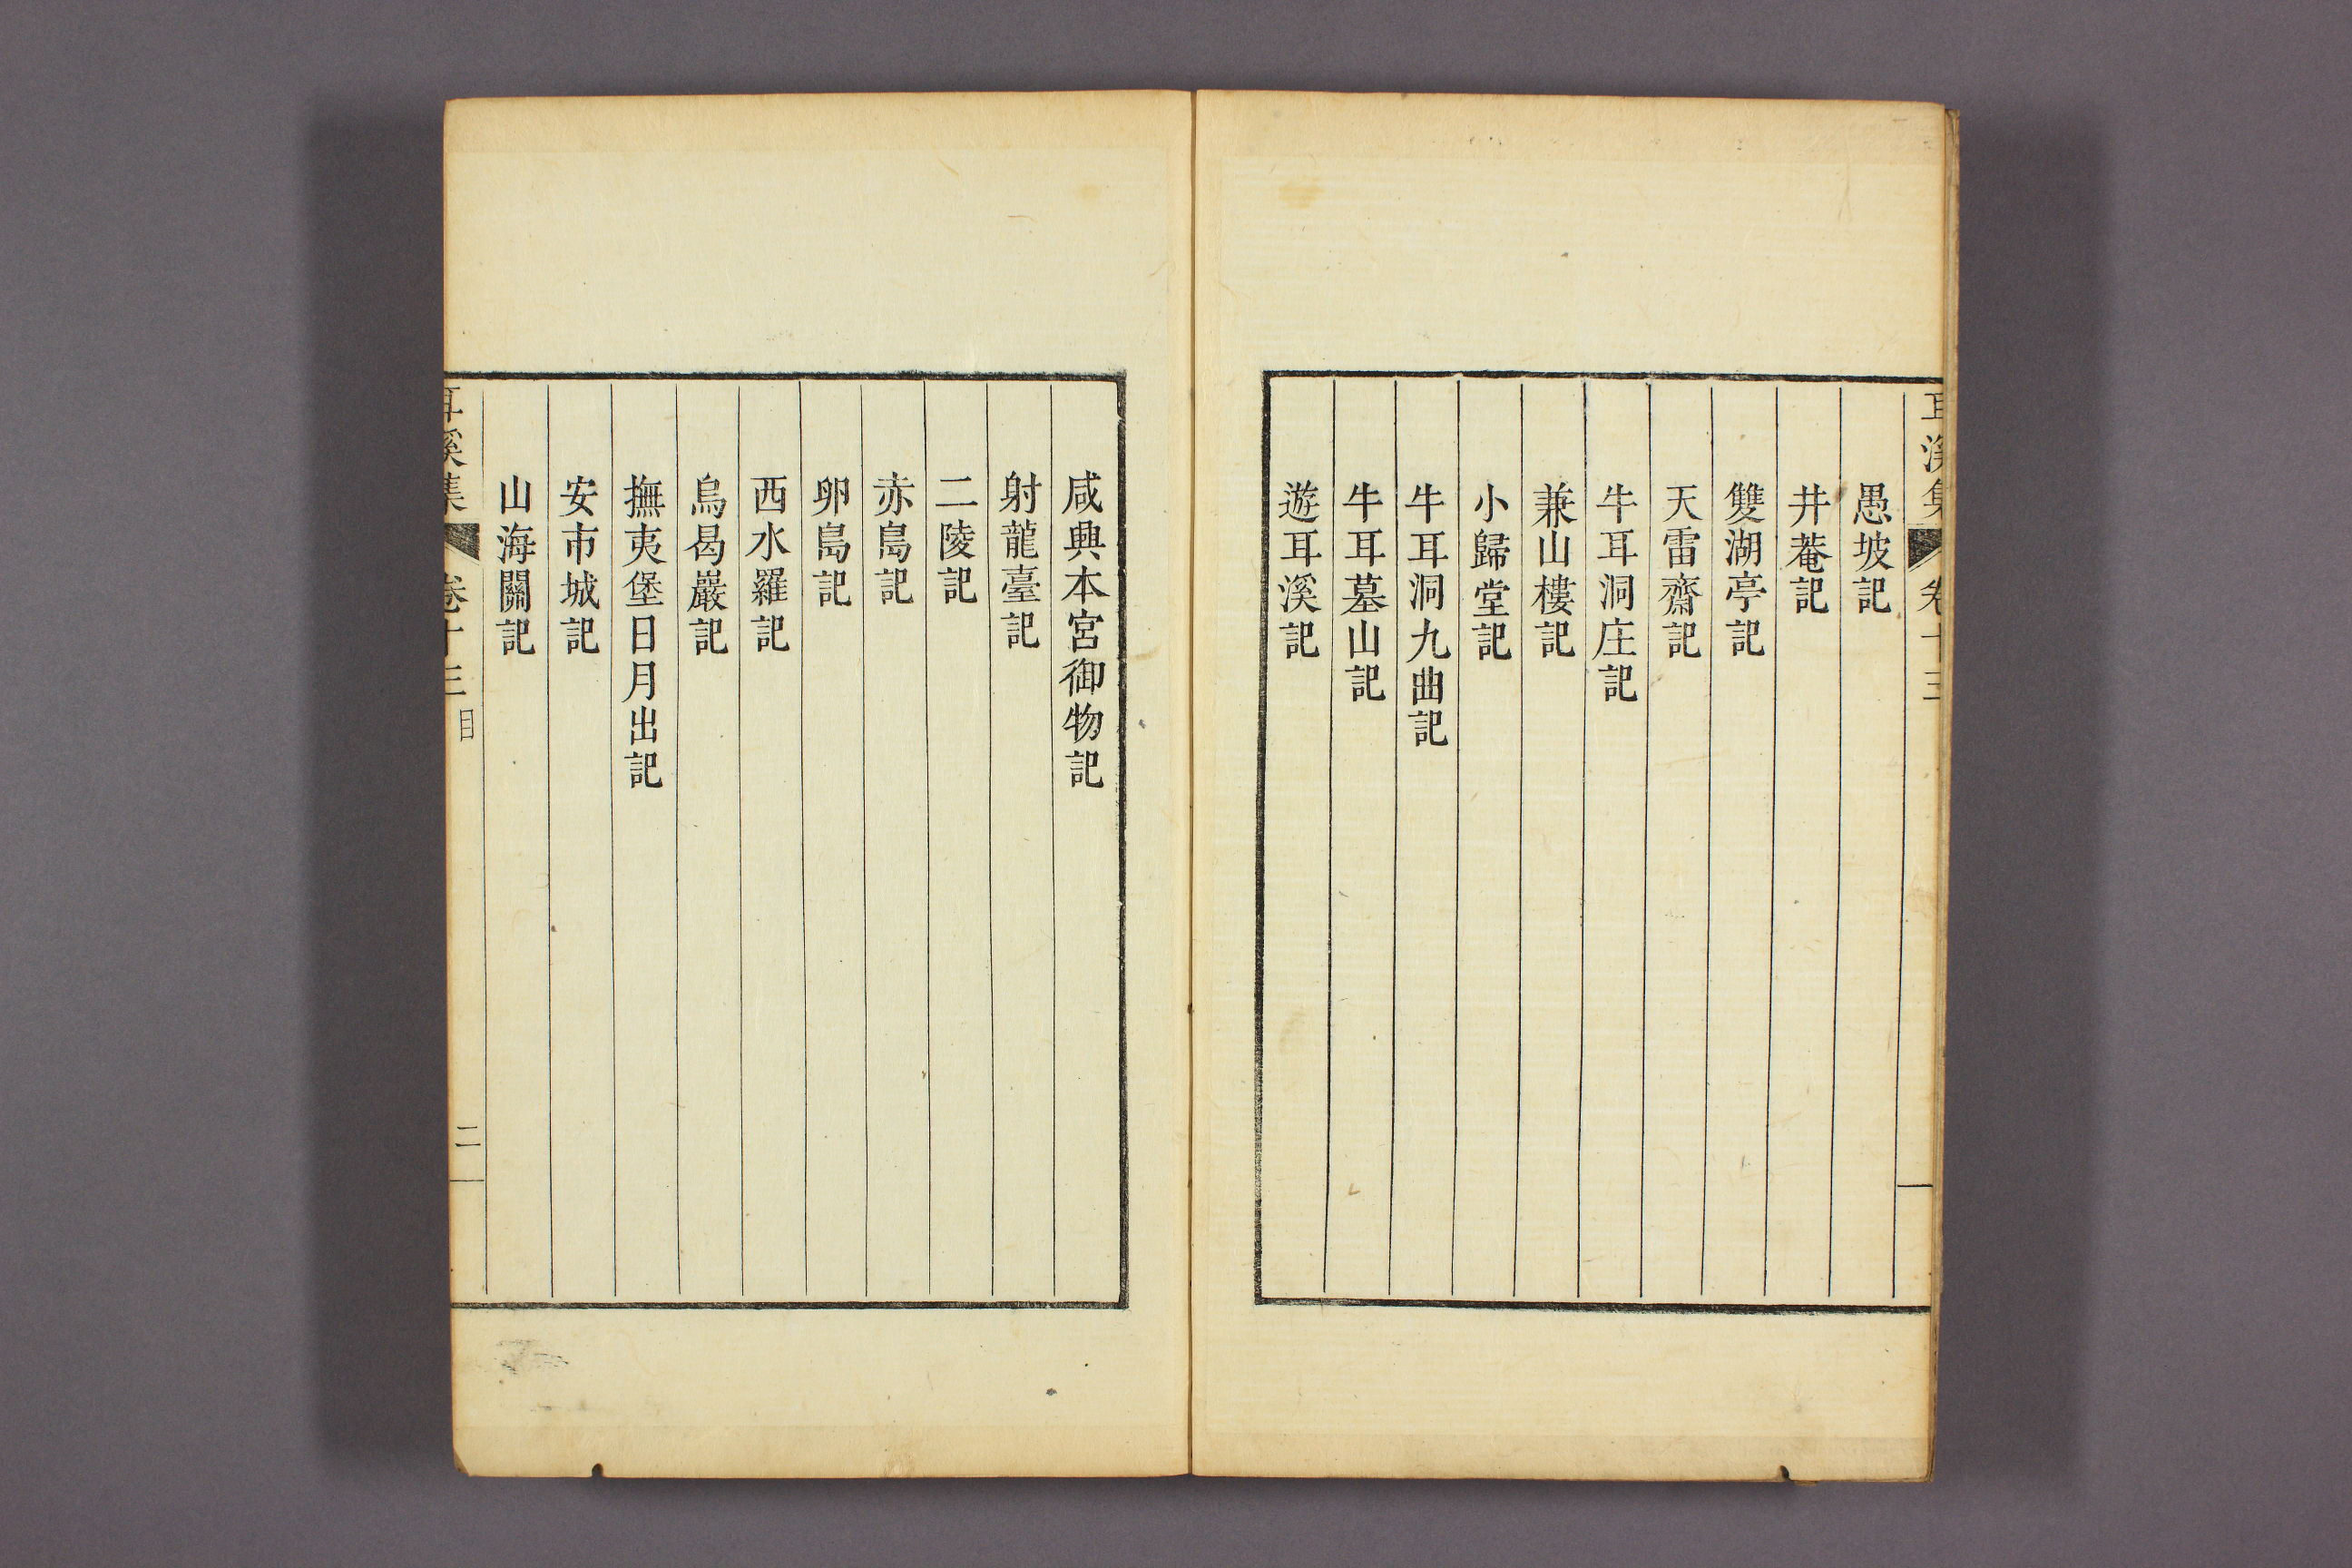 耳溪集
卷十三
愚坡記
井菴記
雙湖亭記
天雷齋記
牛耳洞庄記
兼山樓記
小歸堂記
牛耳洞九曲記
牛耳墓山記
遊耳溪記
咸興本宮御物記
射龍臺記
二陵記
赤島記
卵島記
西水羅記
烏曷巖記
撫夷堡日月出記
安市城記
山海關記
耳溪集
卷十三
目
二